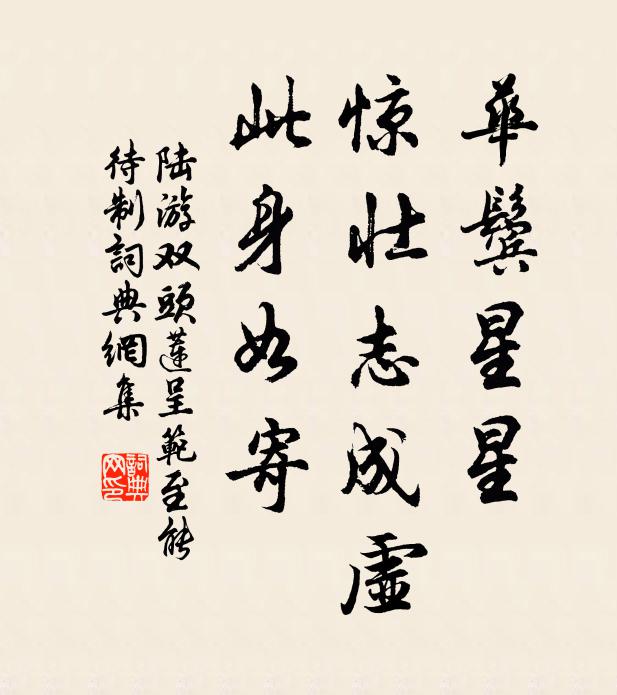 華鬢星星
惊壮志成虛
此身如寄
陆游双頭蓮呈範至能
待制詞典網集
詞典网印